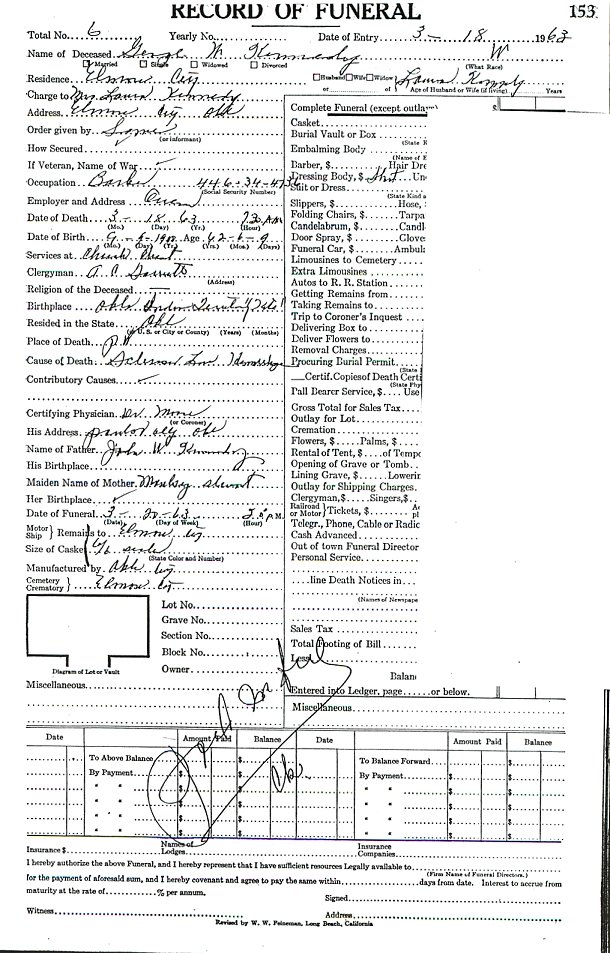 RECORD OF FUNERAL 153
Total No. 6 Yearly No. Date of Entry 3 - 18 1963
Name of Deceased George W. Kennedy W
Married Single Widowed Divorced (What Race)
Residence Elmore City Husband Wife Widow Laura
or Age of Husband or Wife (if living) Years
Charge to Mrs Laura Kennedy
Address Elmore City Okla
Order given by Same
(or informant)
How Secured
If Veteran, Name of War
Occupation Barber 446-34-47
(Social Security Number)
Employer and Address Own
Date of Death 3 - 18 63 A.M.
(Mo.) (Day) (Yr.) (Hour)
Date of Birth Age
(Mo.) (Day) (Yr.) (Yrs.) (Mos.) (Days)
Services at Church
Clergyman A. C.
(Address)
Religion of the Deceased
Birthplace Okla Indian
Resided in the State Okla
(or U.S. or City or County) (Years) (Months)
Place of Death
Cause of Death Hemorrhage
Contributory Causes
Certifying Physician Dr. Moore
(or Coroner)
His Address
Name of Father John W. Kennedy
His Birthplace
Maiden Name of Mother
Her Birthplace
Date of Funeral 3 - 20 - 63 P.M.
(Date) (Day of Week) (Hour)
Motor Ship Remains to Elmore City
Size of Casket
(State Color and Number)
Manufactured by Okla City
Cemetery Crematory Elmore City
Lot No.
Grave No.
Section No.
Block No.
Owner
Diagram of Lot or Vault
Miscellaneous
Complete Funeral (except outlay
Casket
Burial Vault or Box
(State K
Embalming Body
(Name of E
Barber, Hair Dre
Dressing Body, $ Un
Suit or Dress
(State Kind a
Slippers, Hose,
Folding Chairs, Tarpa
Candelabrum, Candl
Door Spray, Glove
Funeral Car, Ambul
Limousines to Cemetery
Extra Limousines
Autos to R. R. Station
Getting Remains from
Taking Remains to
Trip to Coroner's Inquest
Delivering Box to
Deliver Flowers to
Removal Charges
Procuring Burial Permit
(State
Certif. Copies of Death Certi
(State Phy
Pall Bearer Service, $ Use
Gross Total for Sales Tax
Outlay for Lot
Cremation
Flowers, $ Palms, $
Rental of Tent, $ of Tempo
Opening of Grave or Tomb
Lining Grave, $ Lowerin
Outlay for Shipping Charges
Clergyman, $ Singers, $
Railroad or Motor Tickets, $
Telegr., Phone, Cable or Radio
Cash Advanced
Out of town Funeral Director
Personal Service
line Death Notices in
(Names of Newspape
Sales Tax
Total Footing of Bill
Less
Balan
Entered into Ledger, page or below.
Miscellaneous
Date Amount Paid Balance Date Amount Paid Balance
To Above Balance $ $ To Balance Forward $ $
By Payment $ $ By Payment $ $
" " $ $ " " $ $
" " $ $ " " $ $
" " $ $ " " $ $
" " $ $ " " $ $
Insurance $ Names of Lodges Insurance Companies
I hereby authorize the above Funeral, and I hereby represent that I have sufficient resources Legally available to
(Firm Name of Funeral Directors.)
for the payment of aforesaid sum, and I hereby covenant and agree to pay the same within days from date. Interest to accrue from
maturity at the rate of % per annum. Signed
Witness Address
Revised by W. W. Feineman, Long Beach, California